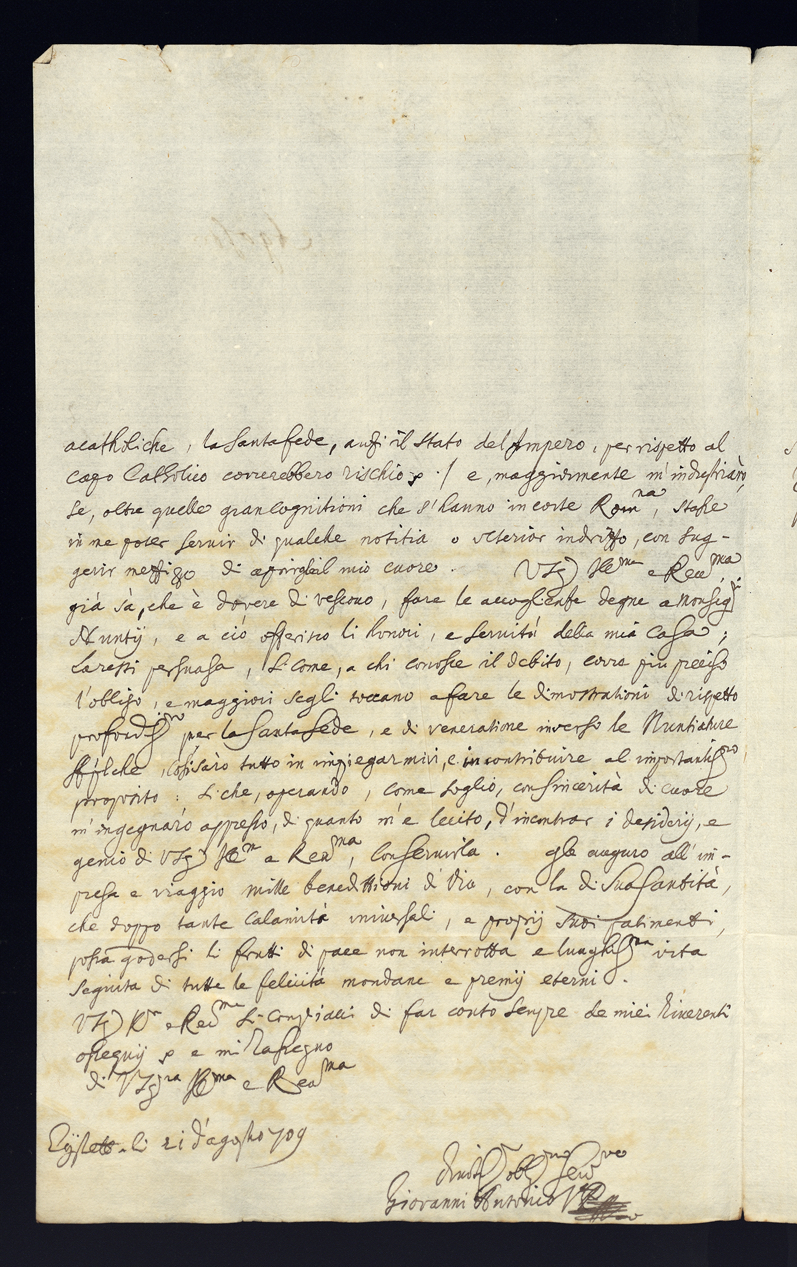 acatholiche, la Santa Sede, anzi il Stato del Impero, per rispetto al
capo Catholico correrebbero rischio p. / e, maggiormente m'industriarò,
se, oltre quelle gran cognitioni che s'hanno in corte Romna, stasse
in me poter servir di qualche notitia o ulterior indrizzo, con sug-
gerir mezzi, o di aprirgli il mio cuore. VSg Illma e Revma
già sà, che è dovere di vescovo, fare le accoglienze degne a Monsigri
Nuntij, e a ció offerisco li honori, e servitú della mia Casa;
La resti persuasa, si come, a chi conosce il debito, corre piu preciso
l'obligo, e maggiori segli toccano a fare le dimostrationi di rispetto
profondissimo per la Santa Sede, e di veneratione inverso le Nuntiature
, cosi sarò tutto in impiegarmivi, e in contribuire al importantissmo
proposito: Si che, operando, come soglio, con sincerità di cuore
m'ingegnaró appresso, di quanto m'e lecito, d'incontrar i desiderij, e
genio di VSg Illm e Revma, Con servirla. Gli auguro all'im-
presa e viaggio mille benedittioni d'Dio, con la di Sua Santità,
che doppo tante calamitá universali, e proprij suoi patimenti,
possa godersi li frutti di pace non interrotta e lunghissma vita
seguita di tutte le felicitá mondane e premij eterni.
VSg Illm e Revme Si Compiacci di far conto sempre de miei riverenti
ossequij p e mi rassegno
di VSgra Illma e Revma
Eystett li 21 d'agosto 709
Divotiss obligmo Servre
Giovanni Antonio